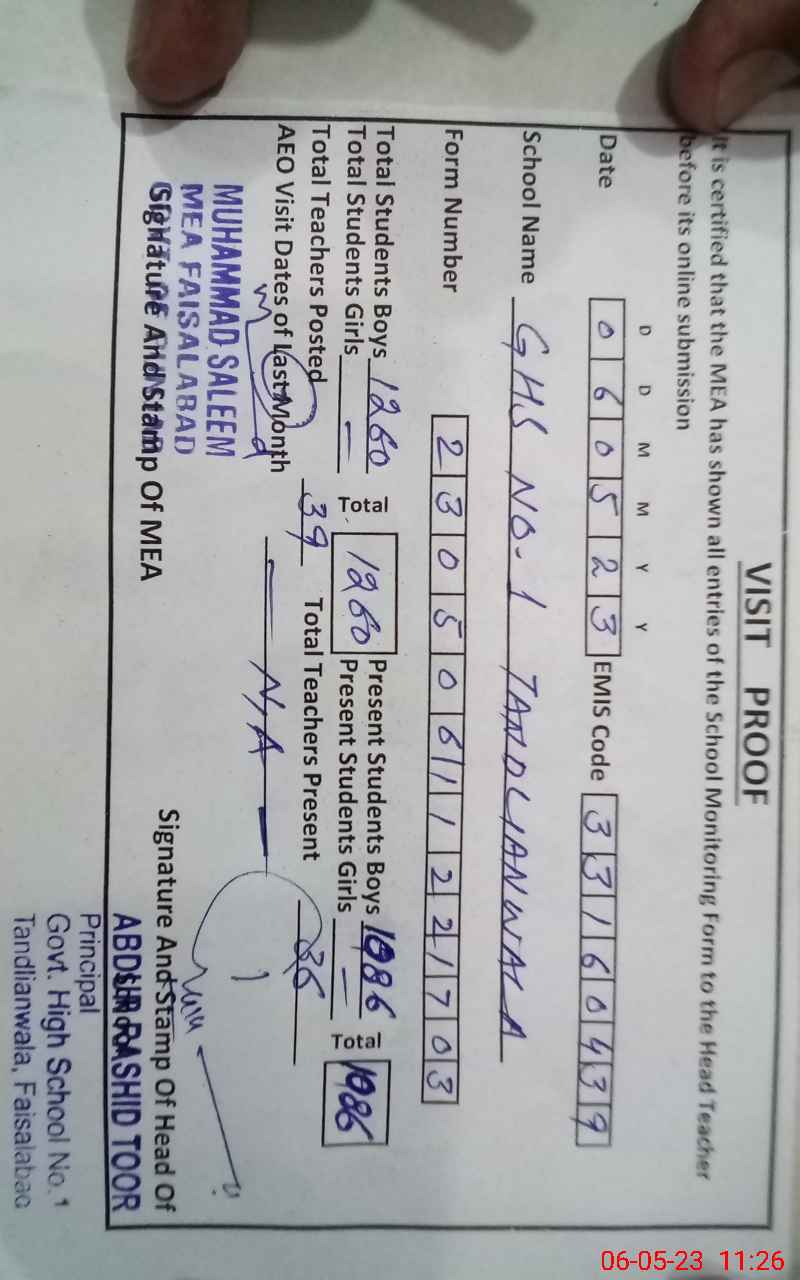 VISIT PROOF
It is certified that the MEA has shown all entries of the School Monitoring Form to the Head Teacher
before its online submission
D D M M Y Y
Date 0 6 0 5 2 3 EMIS Code 3 3 1 6 0 4 3 9
School Name GHS NO-1 TANDLIANWALA
Form Number 2 3 0 5 0 6 1 1 2 2 1 7 0 3
Total Students Boys 1260 Total 1260 Present Students Boys 1086 Total 1086
Total Students Girls — Present Students Girls —
Total Teachers Posted 39 Total Teachers Present 36
AEO Visit Dates of Last Month — N/A —
MUHAMMAD SALEEM
MEA FAISALABAD
Signature And Stamp Of MEA
Signature And Stamp Of Head Of
ABDUR RASHID TOOR
Principal
Govt. High School No.1
Tandlianwala, Faisalabad
06-05-23 11:26